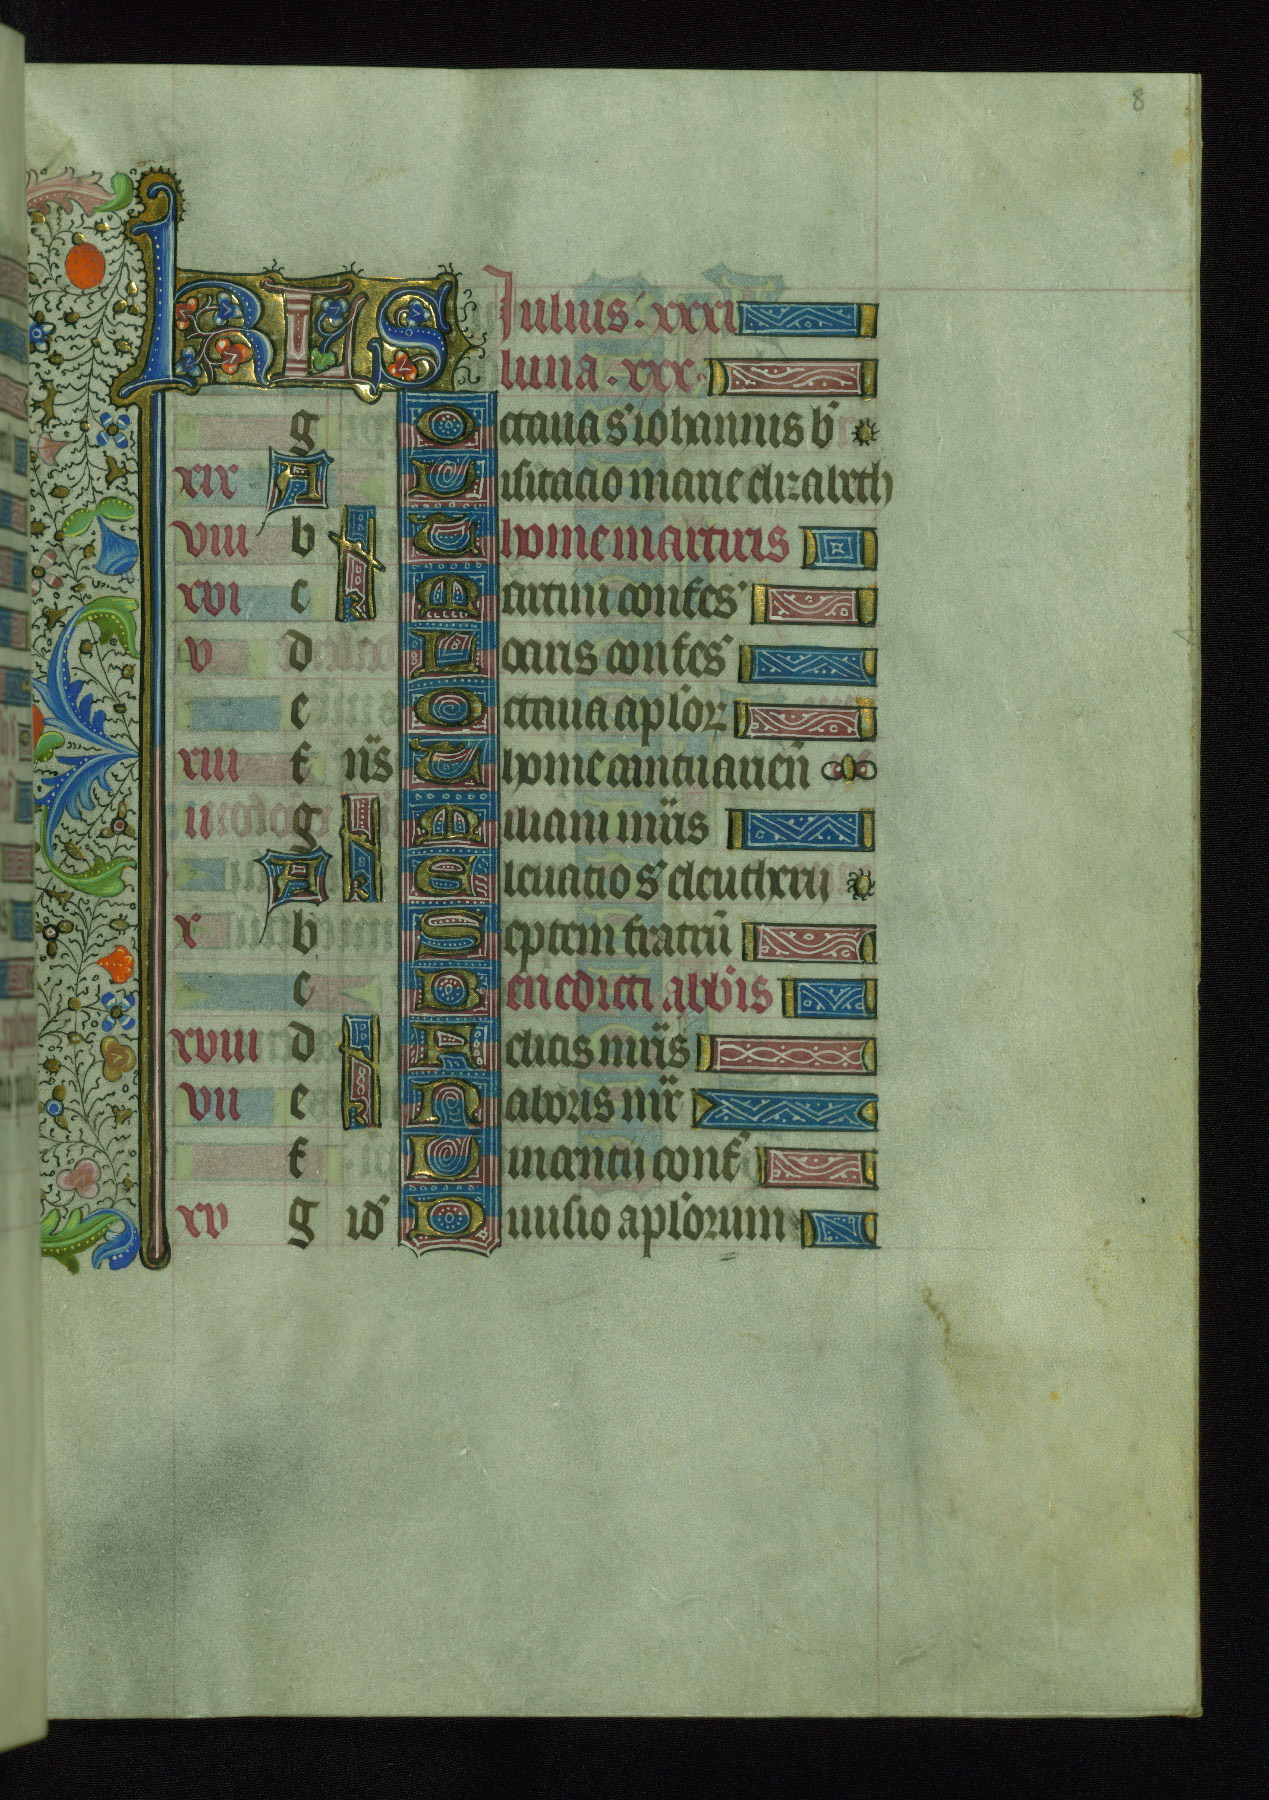 8
KLS Julius. xxxi
luna. xxx.
g Octaua s iohannis b
xix A Uisitacio marie elizabeth
viii b N Thome martiris
xvi c Martini confes
v d Locaris confes
e Octaua aplor
xiii f nis Thome cantuarien
ii g Miliani mris
A Eleuatio s eleutherij
x b Septem fratru
c Benedicti abbis
xviii d Anclitis mris
vii e Naboris mr
f Uincentij conf
xv g id Diuisio aplorum